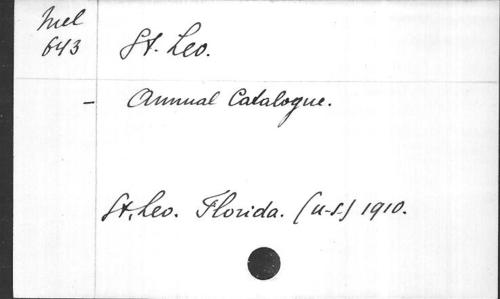 Mel
643
St. Leo.
- Annual Catalogue.
St. Leo. Florida. (U-S-) 1910.